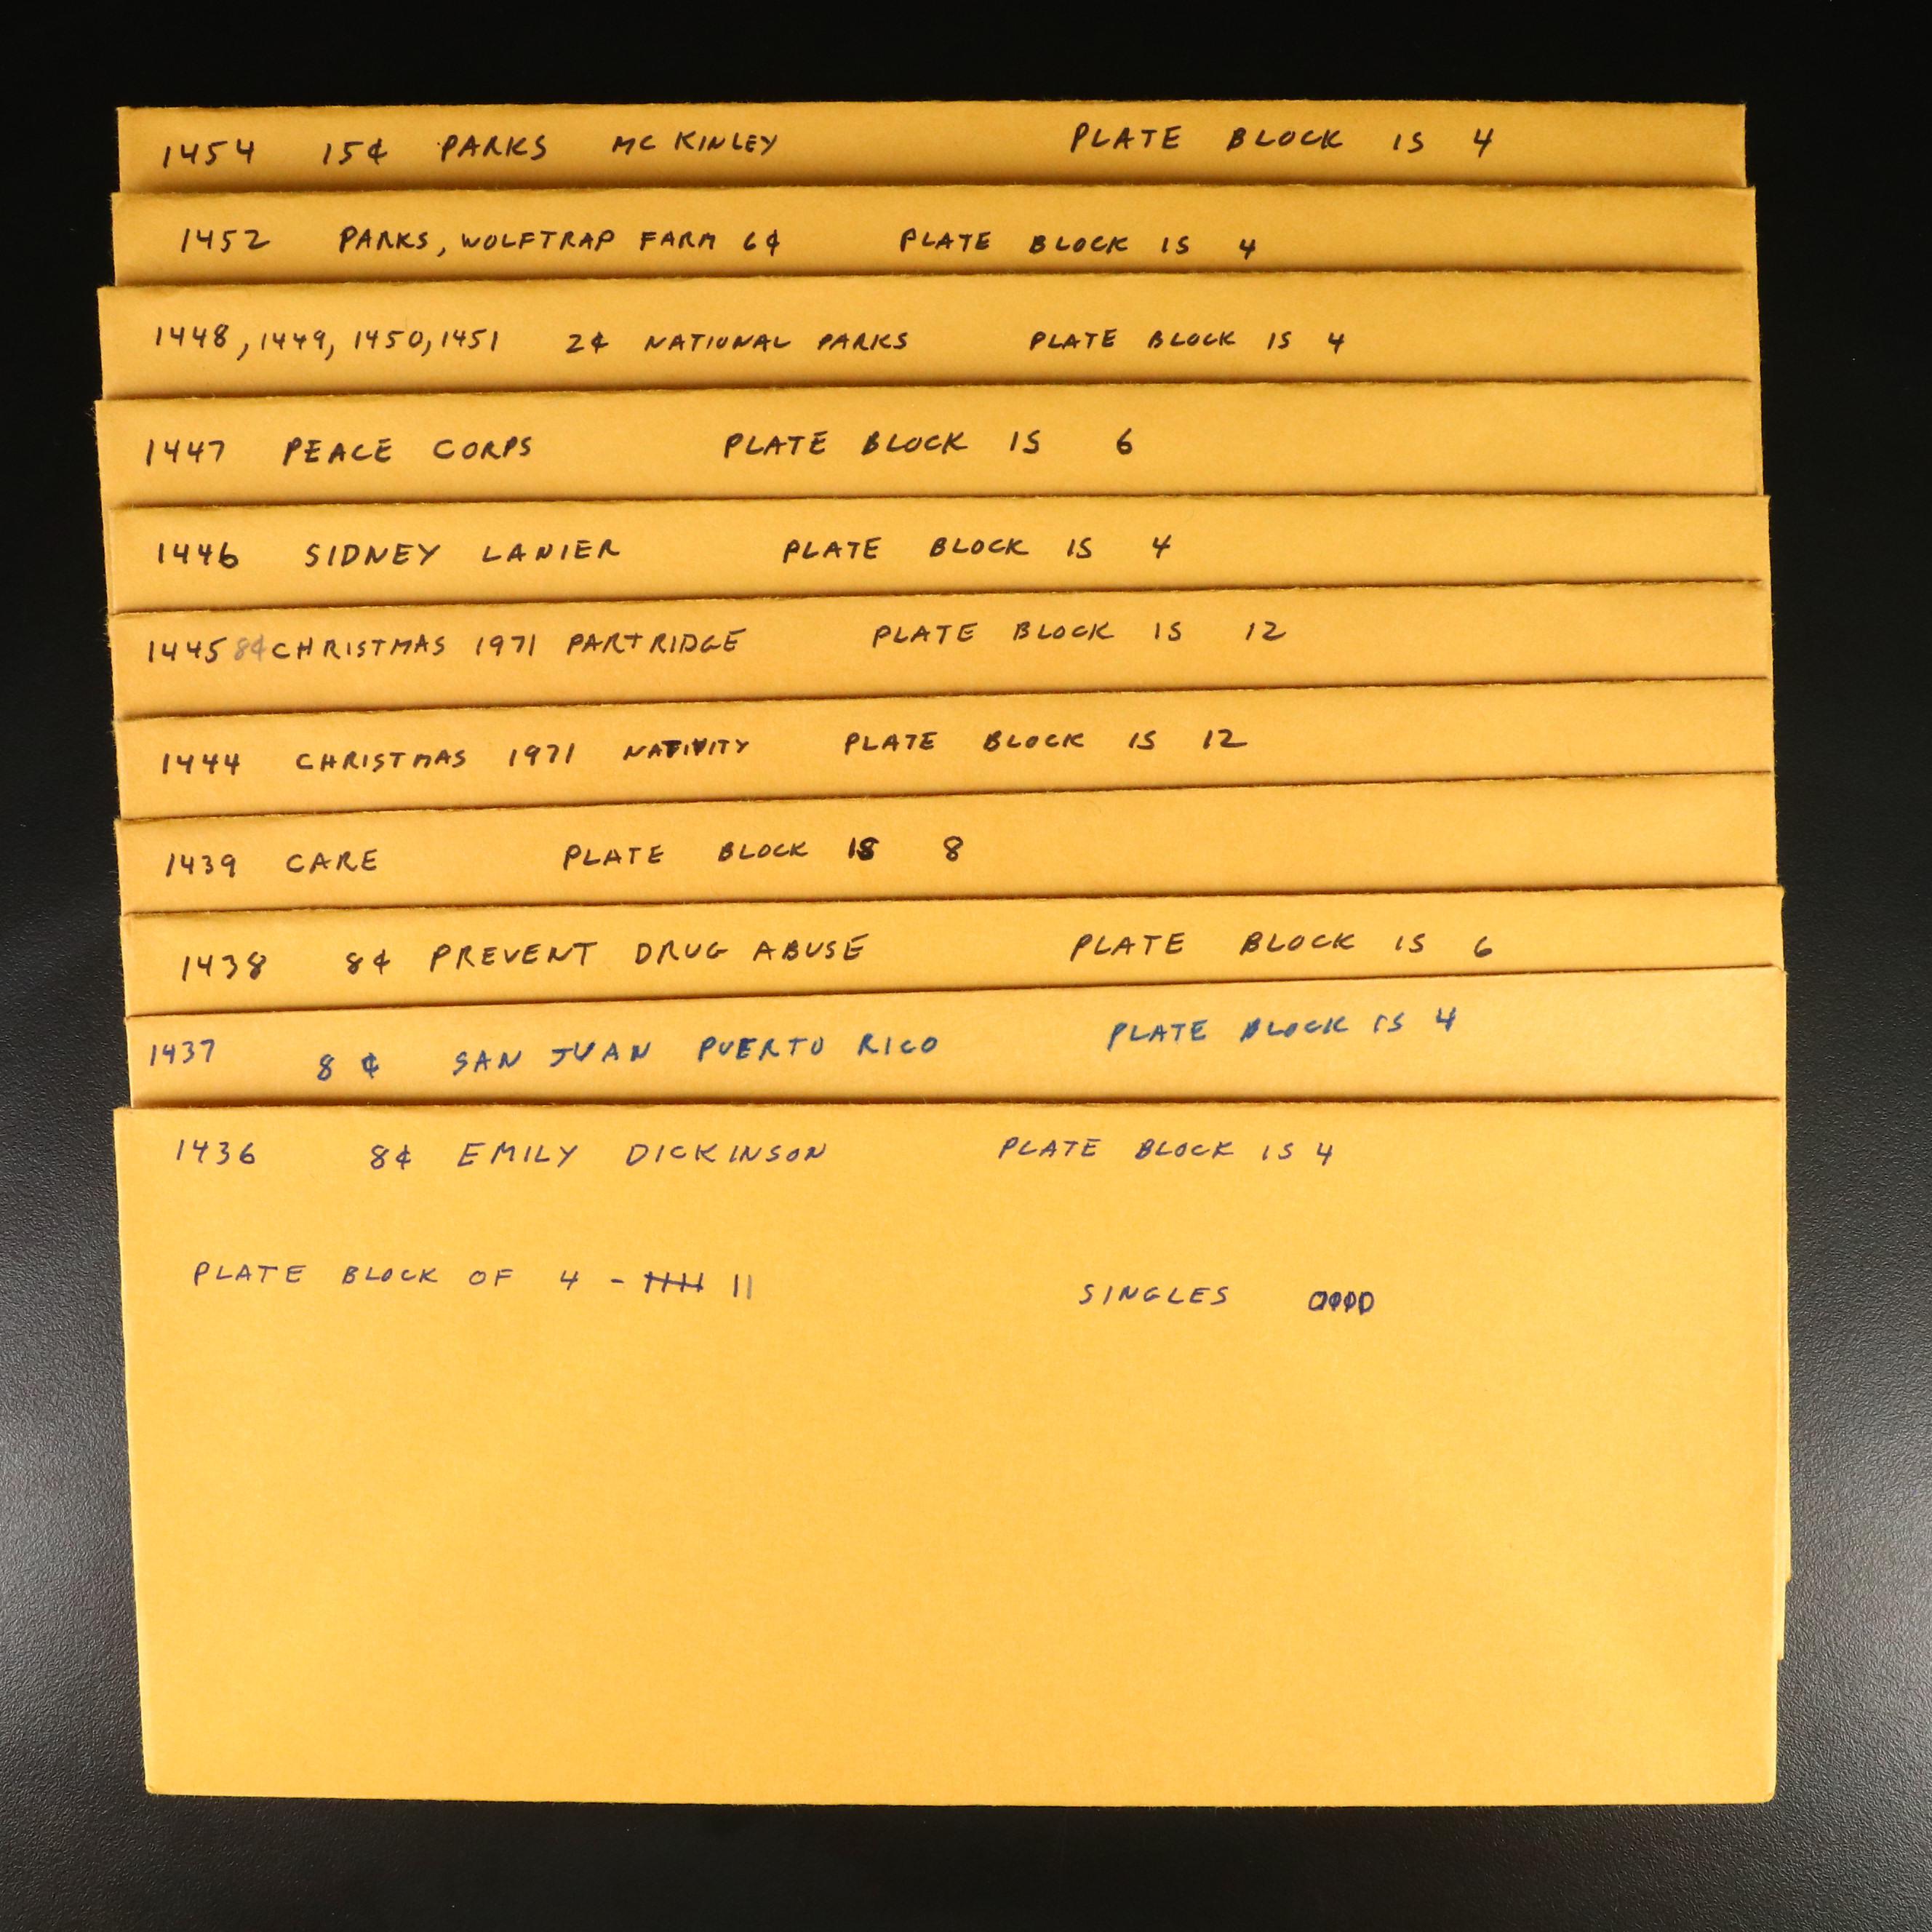 1454 15¢ PARKS MC KINLEY PLATE BLOCK IS 4
1452 PARKS, WOLFTRAP FARM 6¢ PLATE BLOCK IS 4
1448, 1449, 1450, 1451 2¢ NATIONAL PARKS PLATE BLOCK IS 4
1447 PEACE CORPS PLATE BLOCK IS 6
1446 SIDNEY LANIER PLATE BLOCK IS 4
1445 8¢ CHRISTMAS 1971 PARTRIDGE PLATE BLOCK IS 12
1444 CHRISTMAS 1971 NATIVITY PLATE BLOCK IS 12
1439 CARE PLATE BLOCK IS 8
1438 8¢ PREVENT DRUG ABUSE PLATE BLOCK IS 6
1437 8¢ SAN JUAN PUERTO RICO PLATE BLOCK IS 4
1436 8¢ EMILY DICKINSON PLATE BLOCK IS 4
PLATE BLOCK OF 4 - SINGLES